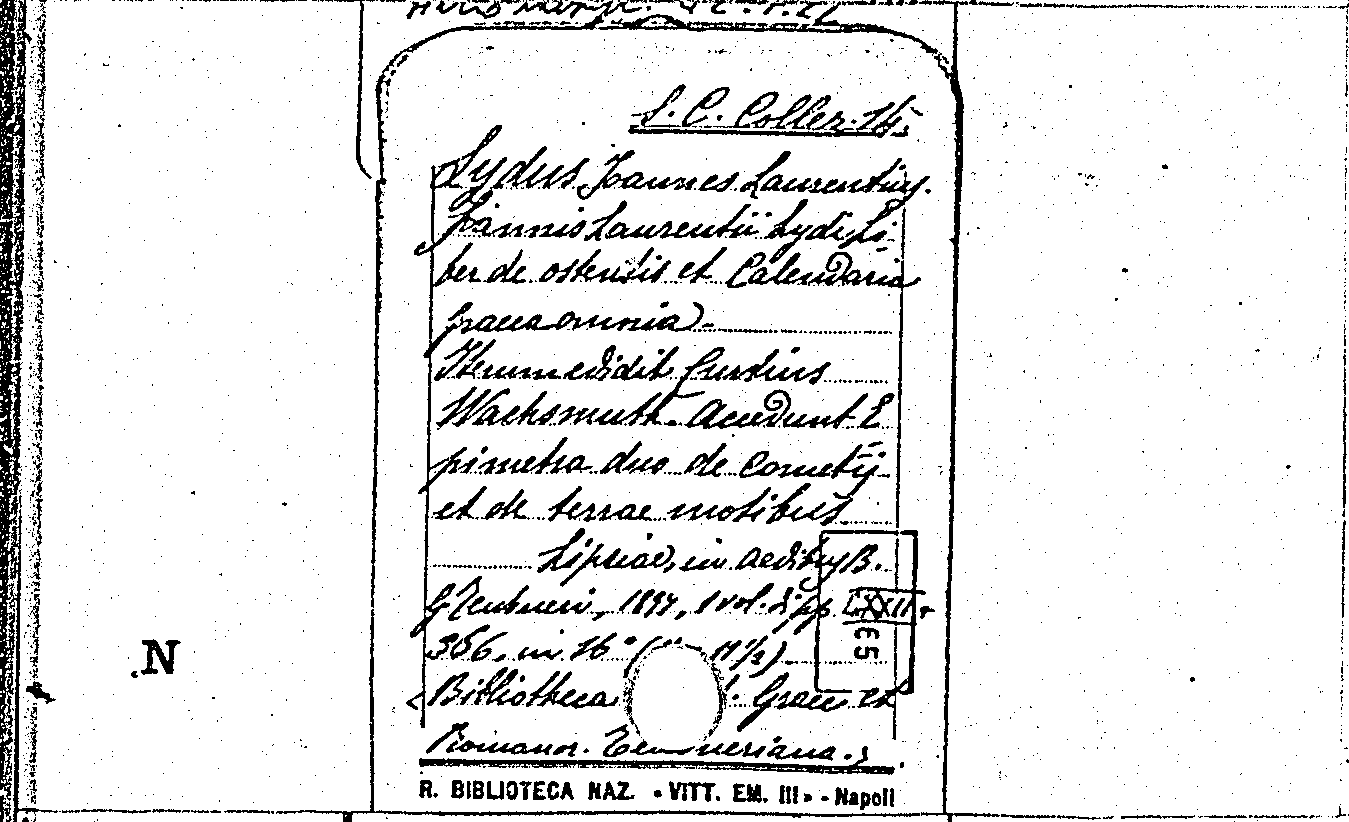 S. C. Collez. 14.
Lydus Joannes Laurentius.
Joannis Laurentii Lydi Li-
ber de ostentis et Calendaria
graeca omnia.
Iterum edidit Curtius
Wachsmuth. Accedunt E
pimetra duo de Cometis
et de terrae motibus
Lipsiae, in aedibus B.
G. Teubneri, 1897, 1 vol. di pp. LXXII-
366, in 16° ( 17½)
Bibliotheca Graec et
Romanor. Teubneriana.
65
N.
R. BIBLIOTECA NAZ. « VITT. EM. III » - Napoli